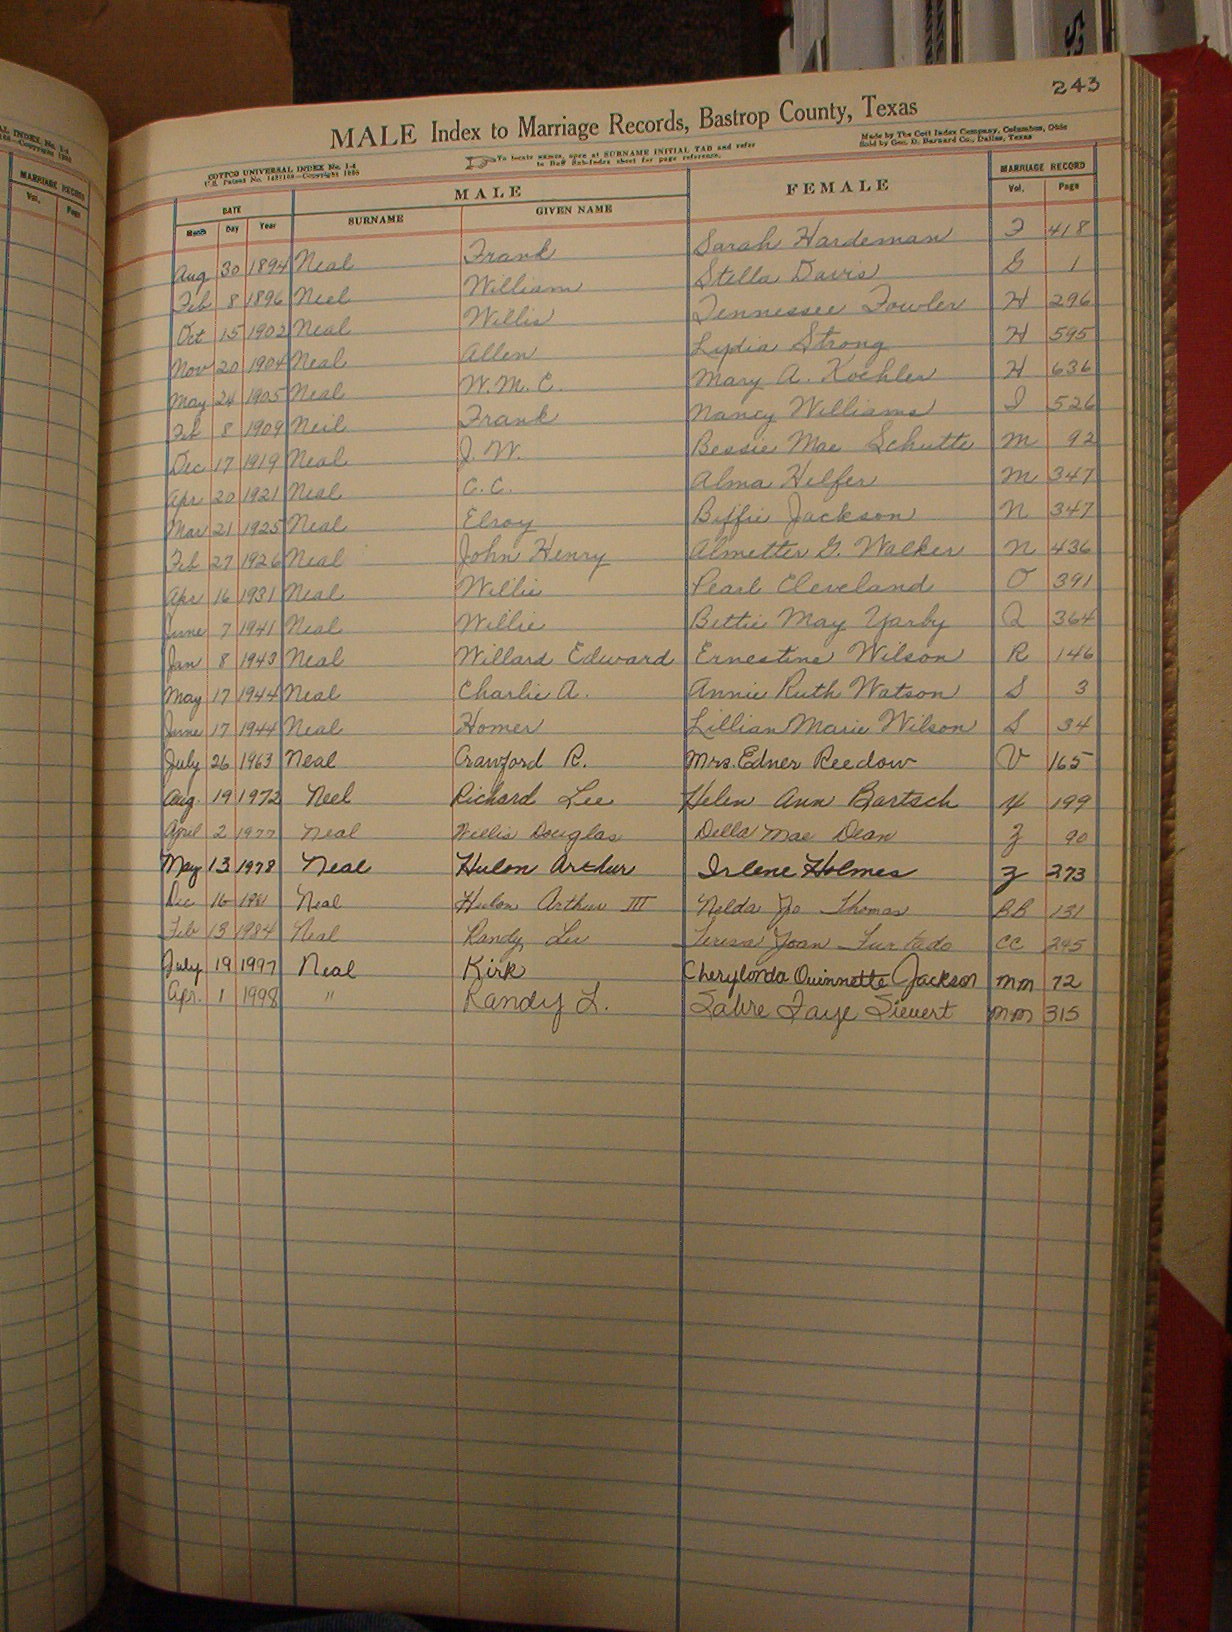 243
MALE Index to Marriage Records, Bastrop County, Texas
COTTCO UNIVERSAL INDEX No. 1-4
To locate names, open at SURNAME INITIAL TAB and refer
Made by The Cott Index Company, Columbus, Ohio
U.S. Patent No. Copyright
to Buff Sub-Index sheet for page reference.
Sold by Geo. D. Barnard Co., Dallas, Texas
DATE MALE FEMALE MARRIAGE RECORD
Month Day Year SURNAME GIVEN NAME Vol. Page
Aug 30 1894 Neal Frank Sarah Hardeman F 418
Feb 8 1896 Neel William Stella Davis G 1
Oct 15 1902 Neal Willis Tennessee Fowler H 296
Nov 20 1904 Neal Allen Lydia Strong H 595
May 24 1905 Neal W.M.C. Mary A. Koehler H 636
Feb 8 1909 Neil Frank Nancy Williams I 526
Dec 17 1919 Neal J. W. Bessie Mae Schutte M 92
Apr 20 1921 Neal C.C. Alma Helfer M 347
Mar 21 1925 Neal Elroy Biffie Jackson N 347
Feb 27 1926 Neal John Henry Almetter G. Walker N 436
Apr 16 1931 Neal Willie Pearl Cleveland O 391
June 7 1941 Neal Willie Bettie May Yarby Q 364
Jan 8 1943 Neal Willard Edward Ernestine Wilson R 146
May 17 1944 Neal Charlie A. Annie Ruth Watson S 3
June 17 1944 Neal Homer Lillian Marie Wilson S 34
July 26 1963 Neal Crawford R. Mrs. Edner Reedow V 165
Aug. 19 1972 Neel Richard Lee Helen Ann Bartsch Y 199
April 2 1977 Neal Willis Douglas Della Mae Dean Z 90
May 13 1978 Neal Hulon Arthur Irlene Holmes Z 273
Dec 16 1981 Neal Hulon Arthur III Nelda Jo Thomas BB 131
Feb 13 1984 Neal Randy Lee Teresa Joan Furtado CC 245
July 19 1997 Neal Kirk Cherylonda Quinnette Jackson MM 72
Apr. 1 1998 " Randy L. Sabre Faye Sievert MM 315
MARRIAGE RECORD
Vol. Page